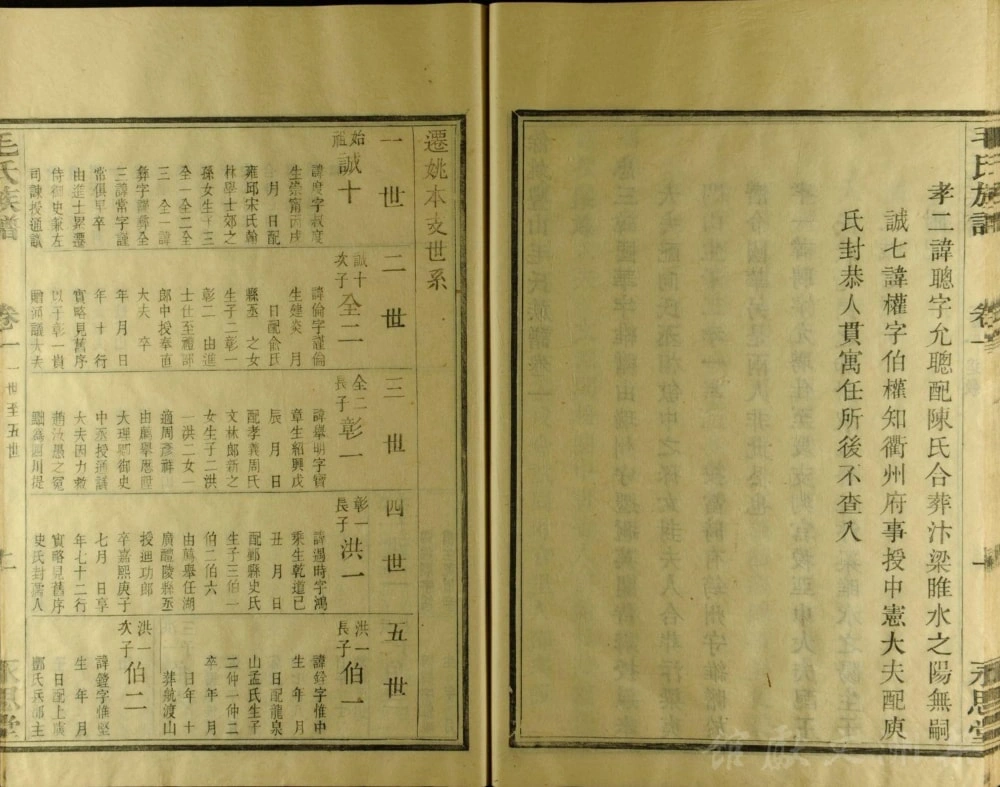 孝二諱聰字允聰配陳氏合葬汴梁睢水之陽無嗣
誠七諱權字伯權知衢州府事授中憲大夫配庾
氏封恭人貫寓任所後不查入
毛氏族譜 卷一 十 永思堂
遷姚本支世系
一世
始祖 誠十
諱度字叔度
生崇甯丙戌
月 日配
雍邱宋氏翰
林學士郊之
孫女生子三
全一全二全
三 全一諱
彝字譯彝全
三諱常字謹
常俱早卒
由進士累遷
侍御史兼左
司諫授通議
二世
誠十次子 全二
諱倫字謹倫
生建炎 月
日配俞氏
縣丞 之女
生子二彰一
彰二 由進
士仕至禮部
郎中授奉直
大夫 卒
年 月 日
年 十 行
實略見舊序
以子彰一貴
贈通議大夫
三世
全二長子 彰一
諱舉明字賓
章生紹興戊
辰 月 日
配孝義周氏
文林郎新之
女生子二洪
一洪二女一
適周彥祥
由薦舉應
大理鄉御史
中丞授通議
大夫因力救
趙汝愚之冤
四世
彰一長子 洪一
諱遇時字鴻
乘生乾道己
丑 月 日
配鄞縣史氏
生子三伯一
伯二伯六
由薦舉任湖
廣醴陵縣丞
授迪功郎
卒嘉熙庚子
七月 日享
年七十二行
實略見舊序
史氏封孺人
五世
洪一長子 伯一
諱銓字惟中
生 年 月
日配龍泉
山孟氏生子
二仲一仲二
卒 年 月
日年 十
三
葬航渡山
洪一次子 伯二
諱鐙字惟堅
生 年 月
日配上虞
氏兵部主
毛氏族譜 卷一 一世至五世 十一 永思堂